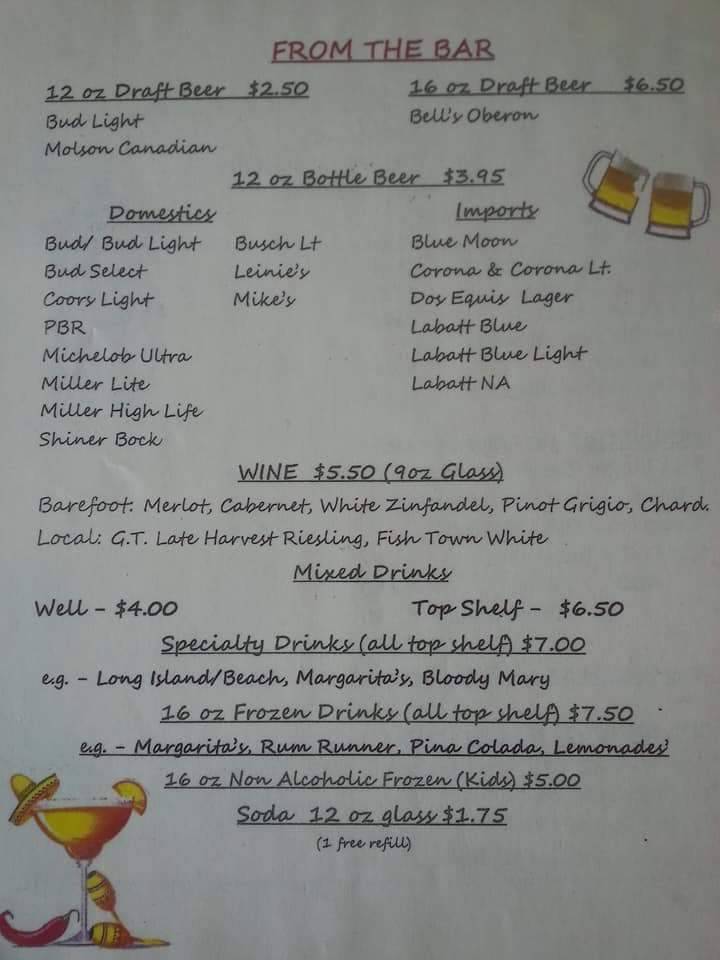 FROM THE BAR
12 oz Draft Beer $2.50
Bud Light
Molson Canadian
16 oz Draft Beer $6.50
Bell's Oberon
12 oz Bottle Beer $3.95
Domestics
Bud/ Bud Light Busch Lt
Bud Select Leinie's
Coors Light Mike's
PBR
Michelob Ultra
Miller Lite
Miller High Life
Shiner Bock
Imports
Blue Moon
Corona & Corona Lt.
Dos Equis Lager
Labatt Blue
Labatt Blue Light
Labatt NA
WINE $5.50 (9oz Glass)
Barefoot: Merlot, Cabernet, White Zinfandel, Pinot Grigio, Chard.
Local: G.T. Late Harvest Riesling, Fish Town White
Mixed Drinks
Well - $4.00 Top Shelf - $6.50
Specialty Drinks (all top shelf) $7.00
e.g. - Long Island/Beach, Margarita's, Bloody Mary
16 oz Frozen Drinks (all top shelf) $7.50
e.g. - Margarita's, Rum Runner, Pina Colada, Lemonades'
16 oz Non Alcoholic Frozen (Kids) $5.00
Soda 12 oz glass $1.75
(1 free refill)